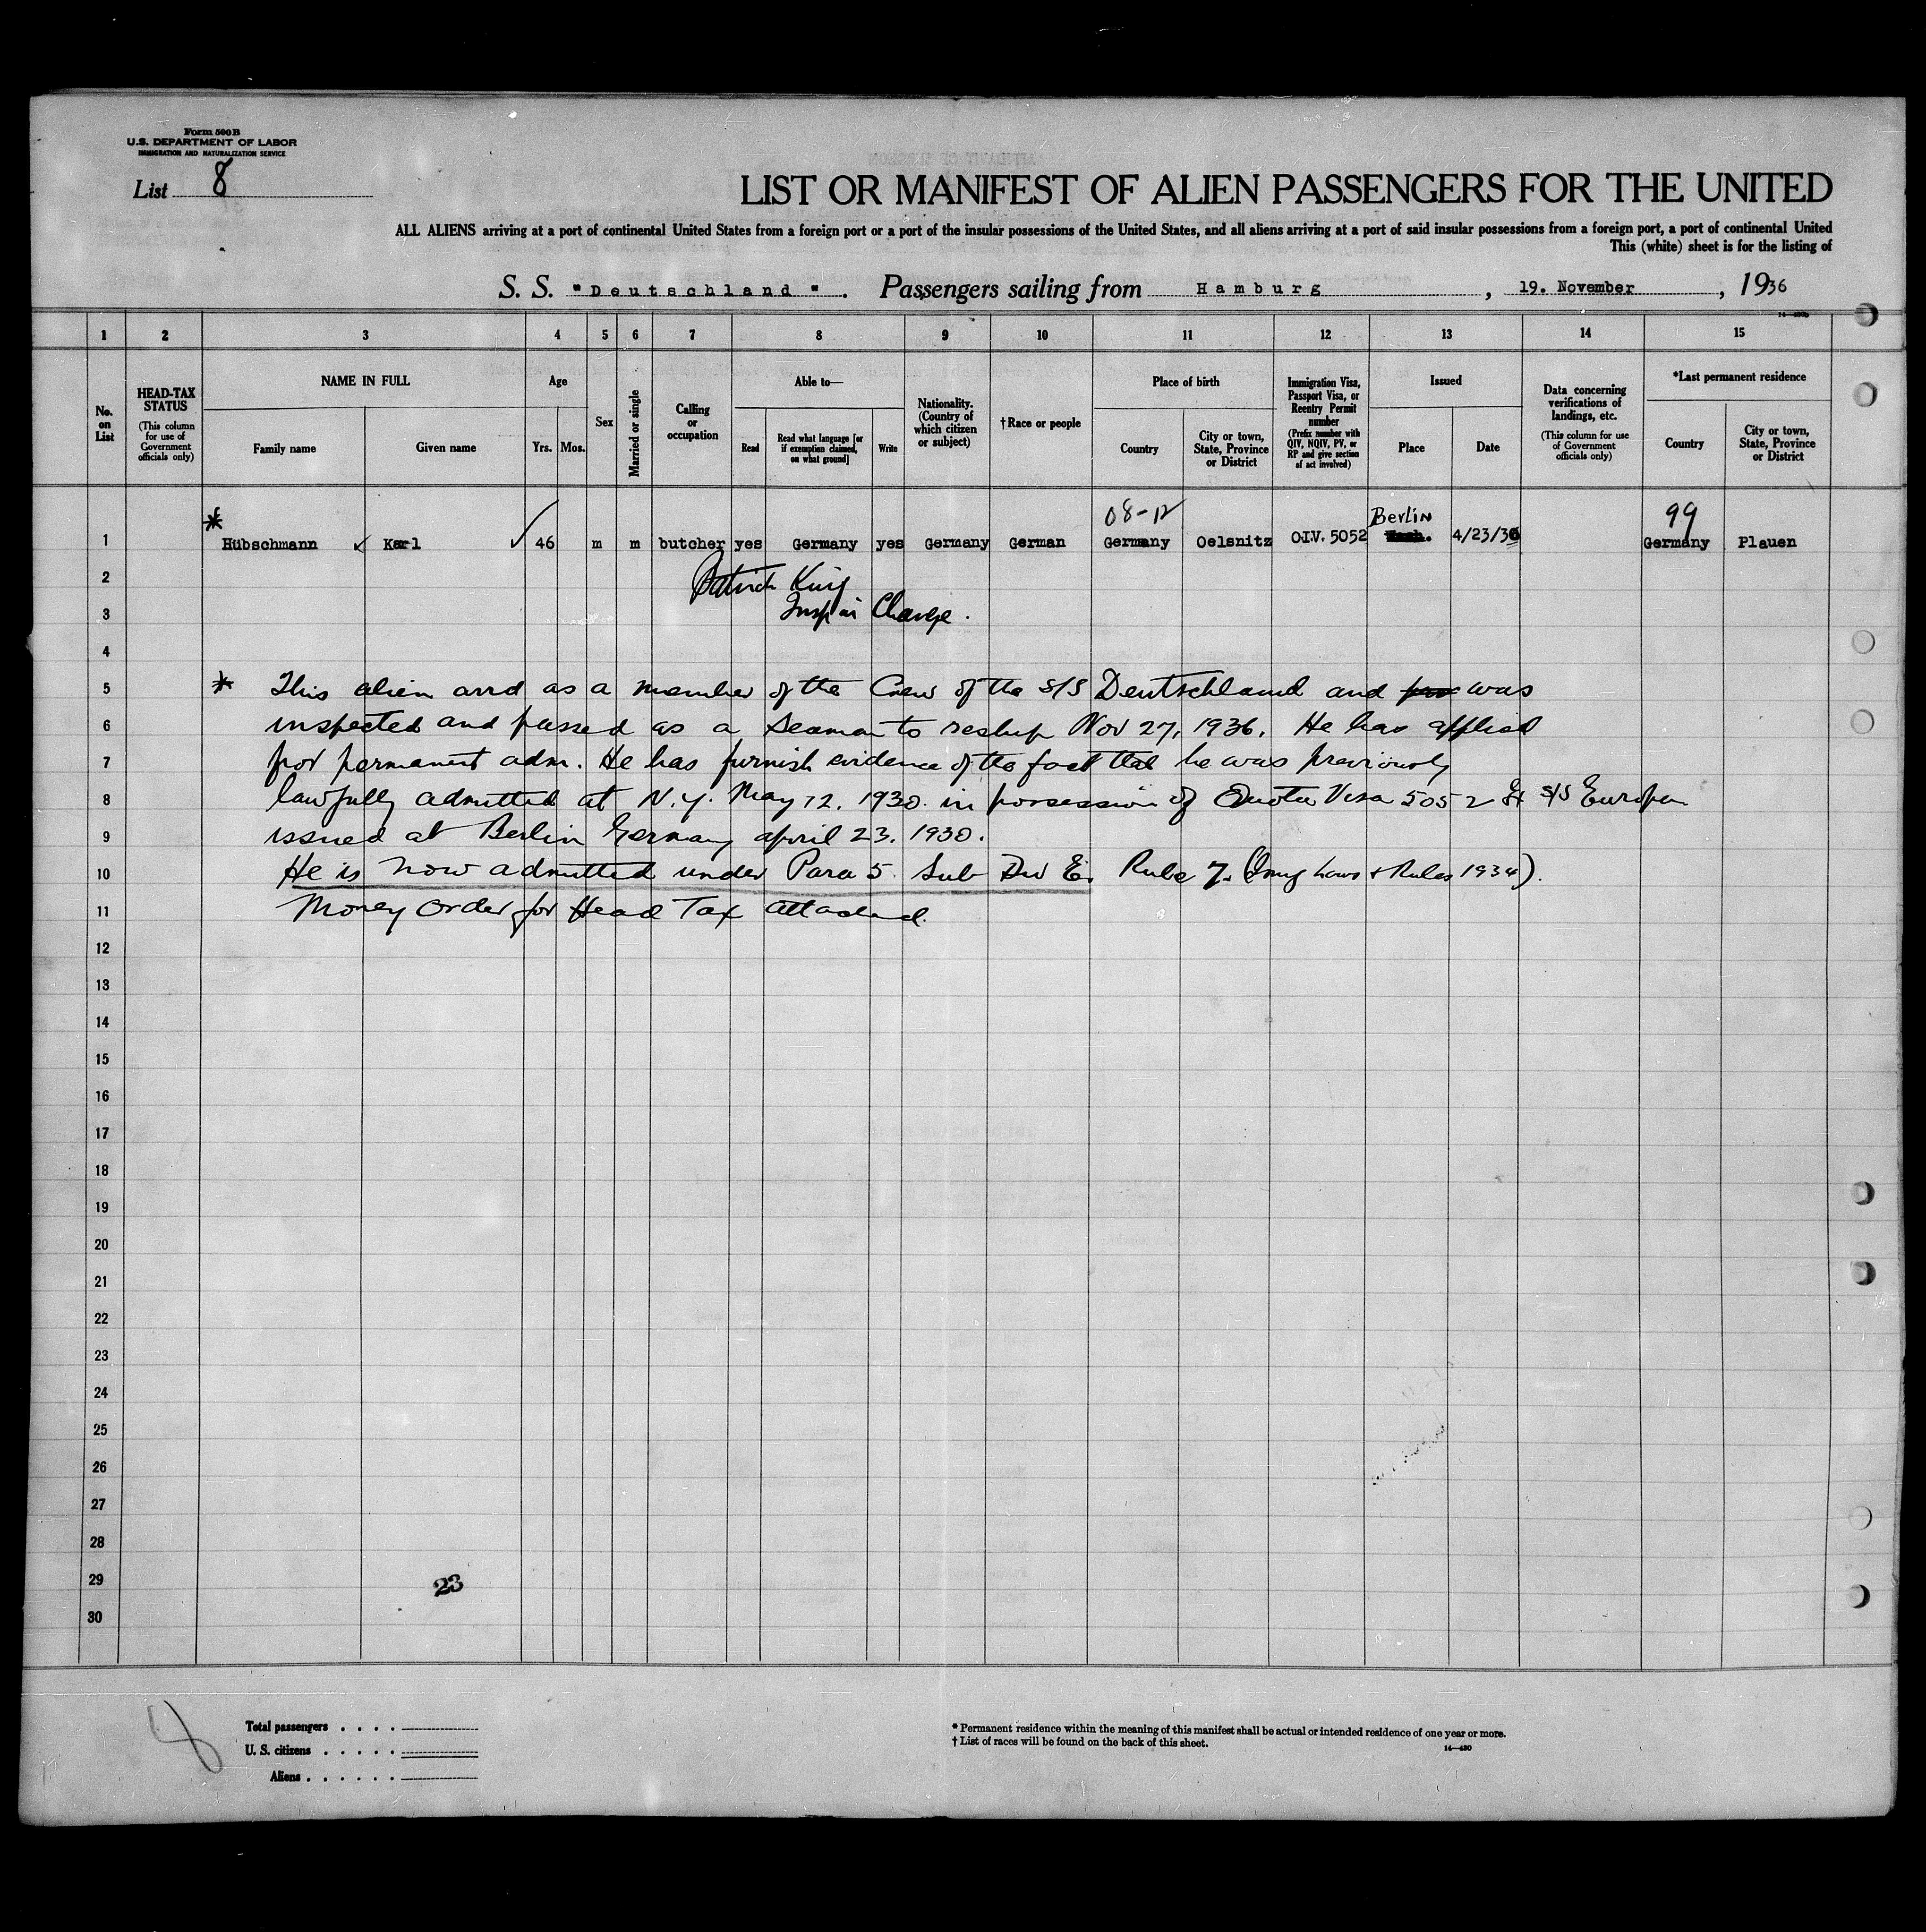 Form 500 B
U.S. DEPARTMENT OF LABOR
IMMIGRATION AND NATURALIZATION SERVICE
List 8
LIST OR MANIFEST OF ALIEN PASSENGERS FOR THE UNITED
ALL ALIENS arriving at a port of continental United States from a foreign port or a port of the insular possessions of the United States, and all aliens arriving at a port of said insular possessions from a foreign port, a port of continental United
This (white) sheet is for the listing of
S. S. "Deutschland". Passengers sailing from Hamburg, 19. November, 1936
1 2 3 4 5 6 7 8 9 10 11 12 13 14 15
No. on List
HEAD-TAX STATUS
(This column for use of Government officials only)
NAME IN FULL
Family name
Given name
Age
Yrs.
Mos.
Sex
Married or single
Calling or occupation
Able to—
Read
Read what language [or if exemption claimed, on what ground]
Write
Nationality. (Country of which citizen or subject)
†Race or people
Place of birth
Country
City or town, State, Province or District
Immigration Visa, Passport Visa, or Reentry Permit number
(Prefix number with QIV, NQIV, PV, or RP and give section of act involved)
Issued
Place
Date
Data concerning verifications of landings, etc.
(This column for use of Government officials only)
*Last permanent residence
Country
City or town, State, Province or District
08-12 Berlin 99
1 * Hübschmann Karl 46 m m butcher yes Germany yes Germany German Germany Oelsnitz Q.I.V. 5052 4/23/30 Germany Plauen
2 Patrick King
3 Insp in Charge.
4
5 * This alien arrd as a member of the Crew of the S/S Deutschland and was
6 inspected and passed as a seaman to reship Nov 27, 1936. He has applied
7 for permanent adm. He has furnish evidence of the fact that he was previously
8 lawfully admitted at N.Y. May 12, 1930 in possession of Quota Visa 5052 S/S Europa
9 issued at Berlin Germany april 23. 1930.
10 He is now admitted under Para 5 Sub Div E. Rule 7. (Immg Laws + Rules 1934).
11 Money order for Head Tax attached.
12
13
14
15
16
17
18
19
20
21
22
23
24
25
26
27
28
29 23
30
8
Total passengers
U. S. citizens
Aliens
* Permanent residence within the meaning of this manifest shall be actual or intended residence of one year or more.
† List of races will be found on the back of this sheet.
14—420